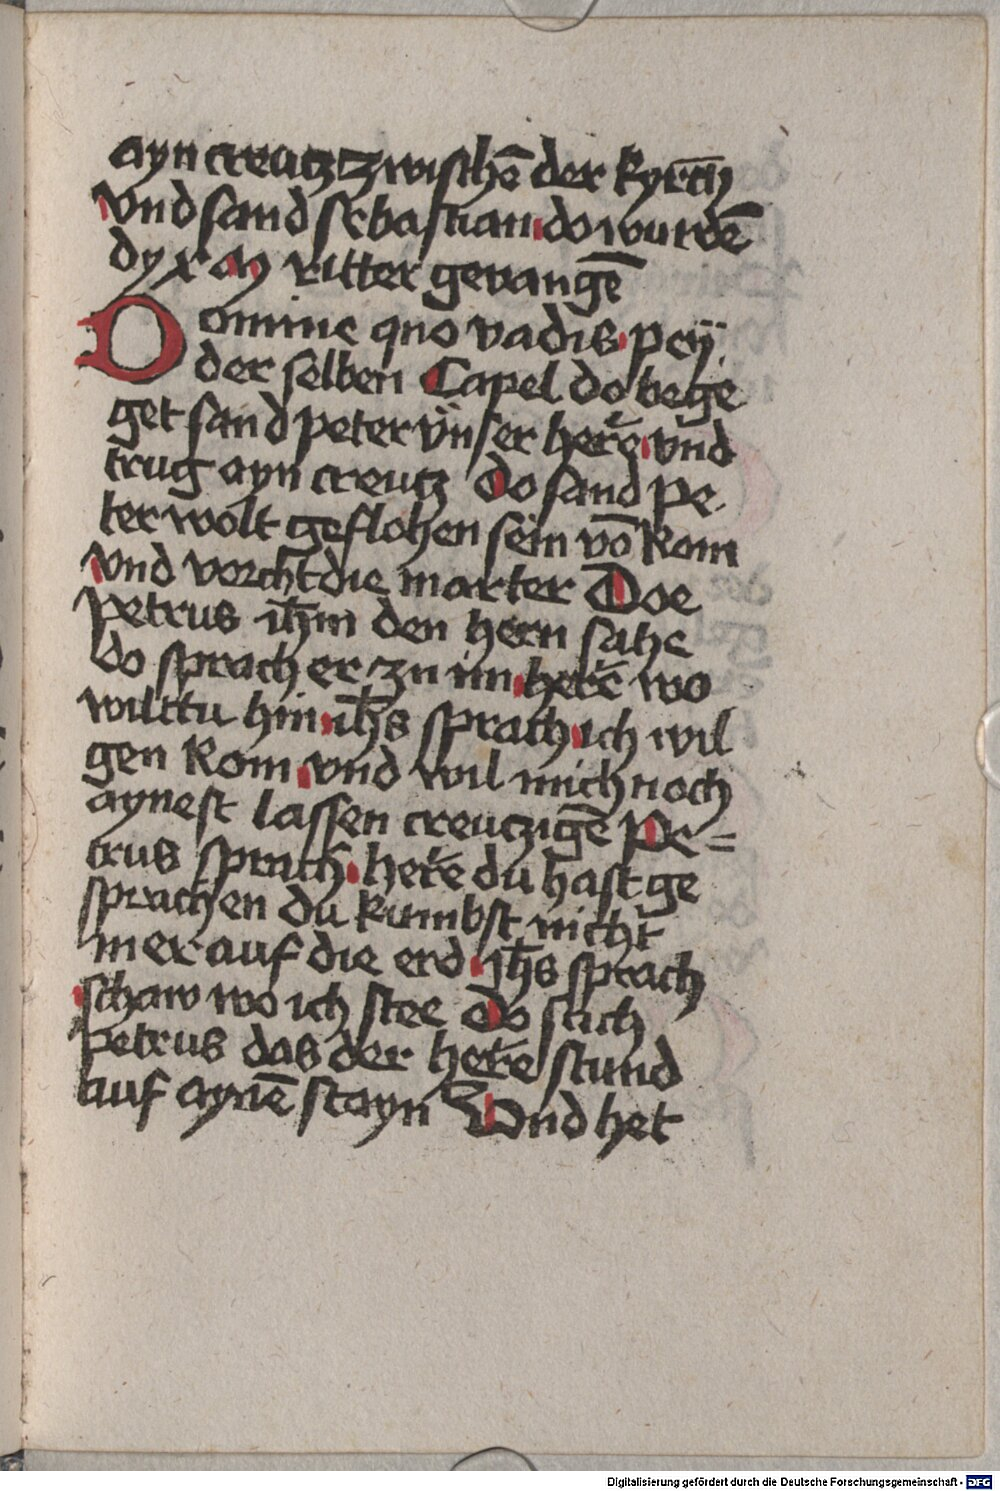 ayn creutz zwischē der kyrch̄
vnd sand sebastian do wurdē
dy x m ritter gevangē
Domine quo vadis peÿ
der selben Capel do bege
get sand peter vnser herre vnd
trug ayn creutz Do sand pe
ter wolt geflohen sein vō Rom
vnd vorcht die marter Doe
petrus ih̄m den hern sahe
do sprach er zu im herre wo
wilttu hin ih̄s sprach ich wil
gen Rom vnd wil mich noch
aynest lassen creutzigē Pe=
trus sprach herre du hast ge
sprachen du kumbst nicht
mer auf die erd ih̄s sprach
schaw wo ich stee Do sach
petrus das der herre stund
auf aynē stayn Vnd het
Digitalisierung gefördert durch die Deutsche Forschungsgemeinschaft - DFG